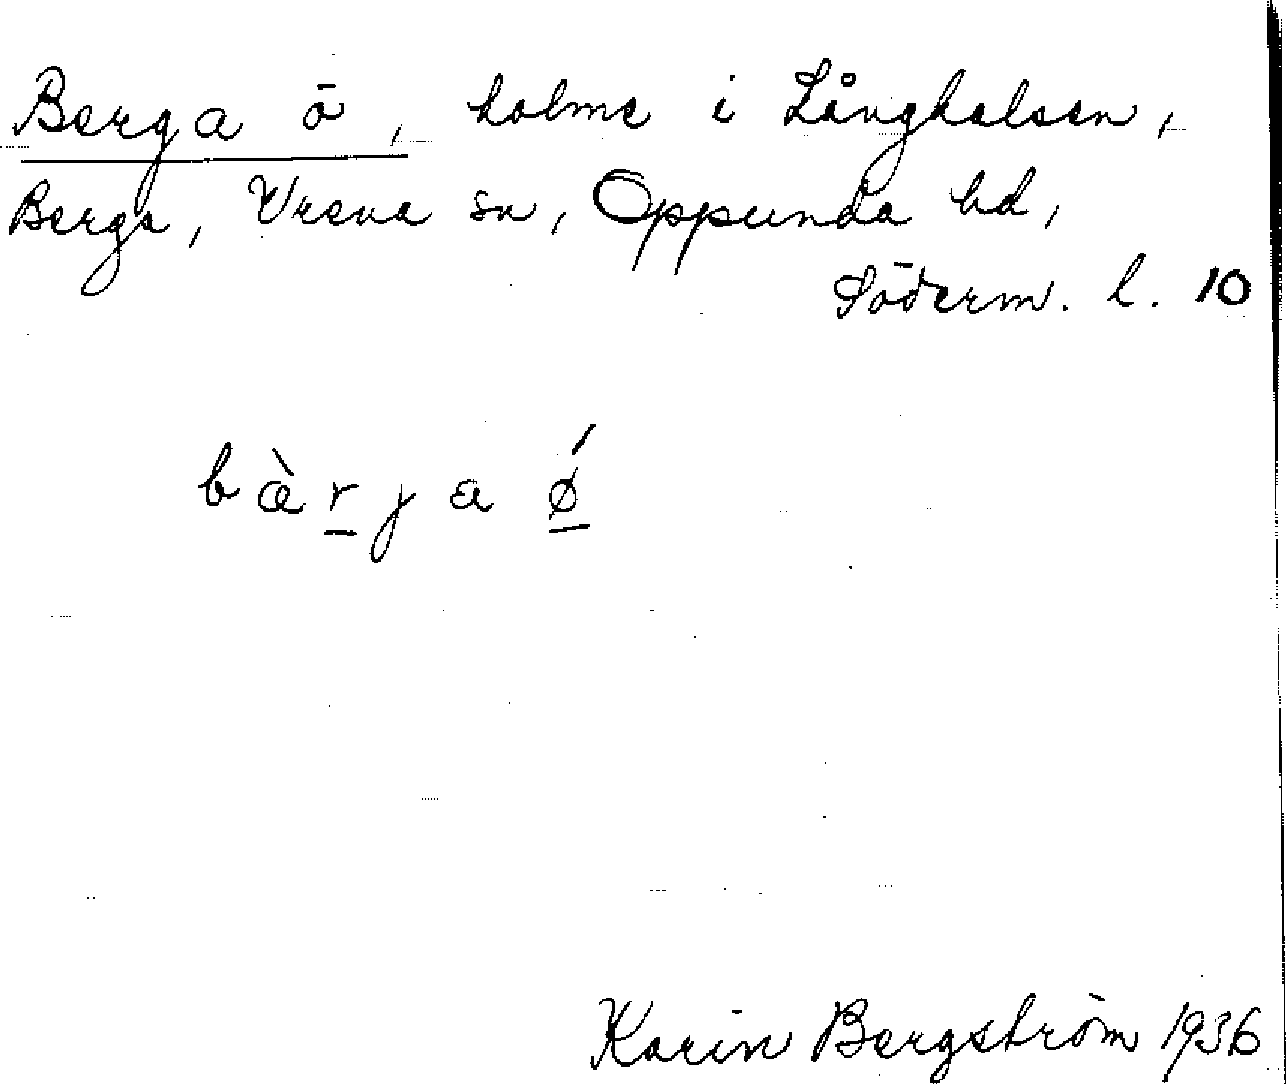 Berga ö, holme i Långhalsen,
Berga, Vrena sn, Oppunda hd,
Söderm. l. 10
bàrja ǿ
Karin Bergström 1936